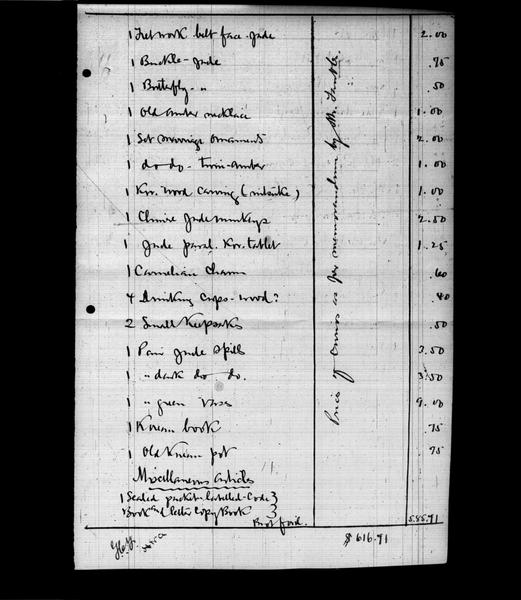 1 Fretwork belt face-Jade 2.00
1 Buckle - Jade .75
1 Butterfly - " .50
1 Old amber necklace 1.00
1 Set marriage ornaments 2.00
1 do do - twin-amber 1.00
1 Kor. wood carving (netsuke) 1.00
1 Chinese Jade monkeys 2.50
1 Jade paral. Kor. tablet 1.25
1 Carnelian Charm .60
4 drinking cups - wood? .40
2 Small Keepsakes .50
1 Pair Jade spills 3.50
1 " dark do. do. 3.50
1 " green vases 9.00
1 Korean book .75
1 Old Korean pot .75
Miscellaneous articles
1 Sealed packet - labelled - Code }
Book and letter Copy Book }
Brot ford. 585.91
$ 616.91
Price of Curios as per memorandum by Mr.